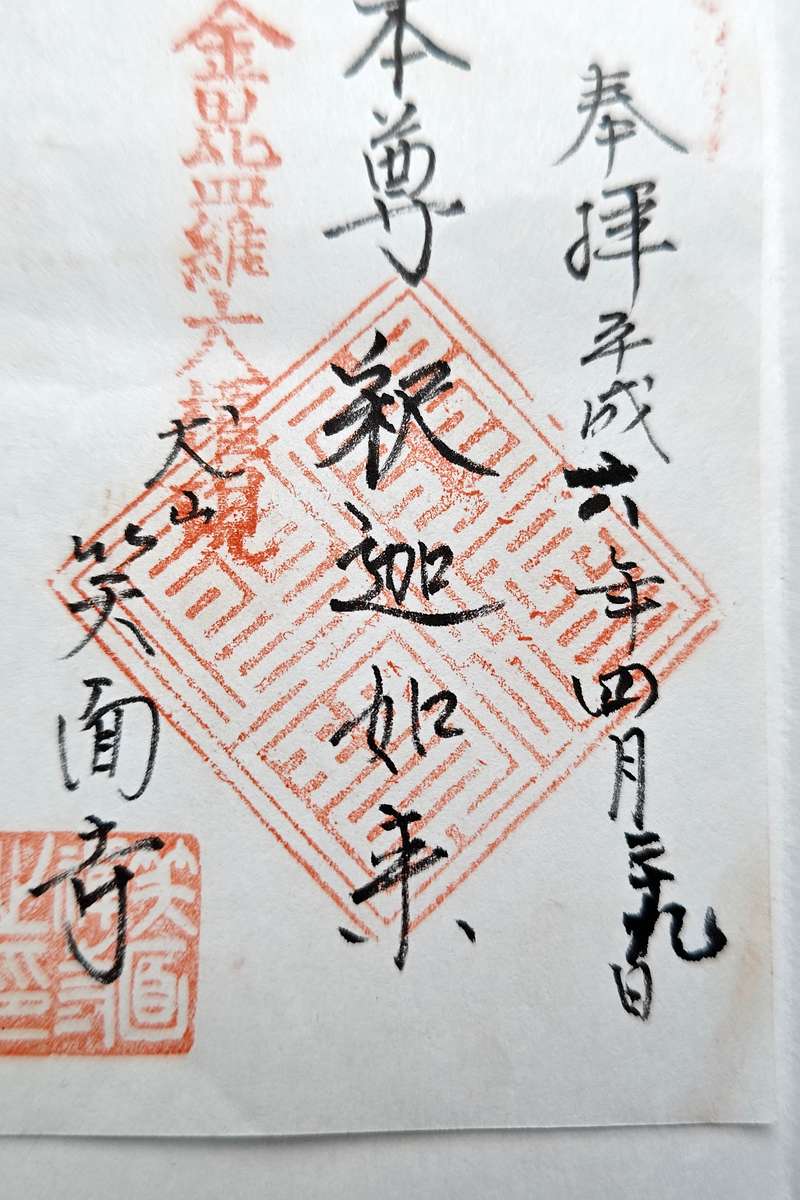 奉拝 平成六年四月二十九日
本尊
釈迦如来
金毘羅大權現
犬山
笑面寺
笑面